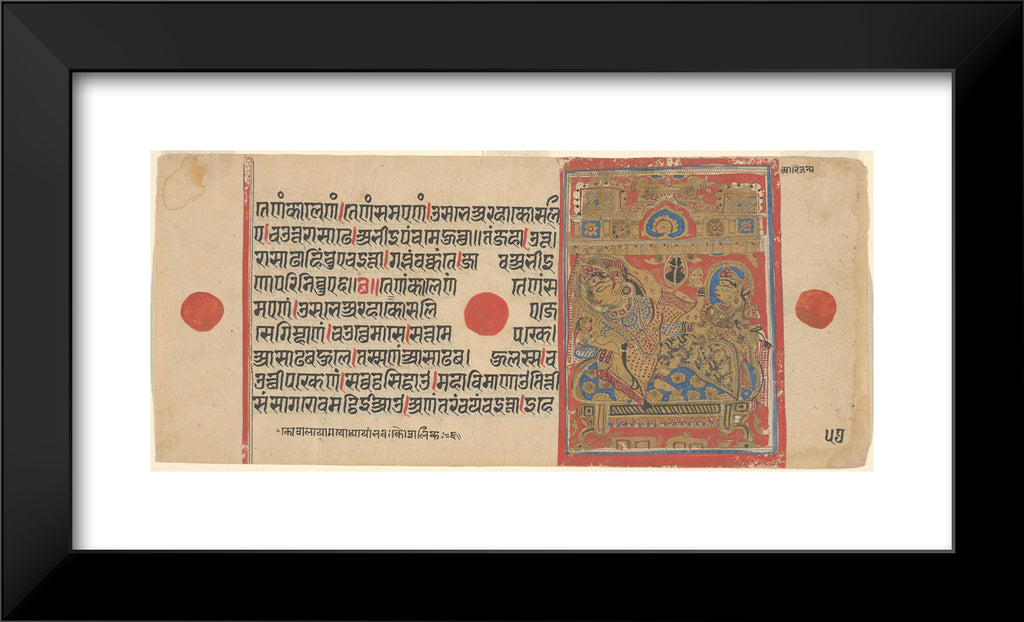 तेणं कालेणं।तेणं समएणं।उसभे अरहा कोसलि
ए।चउउत्तरासाढे।अभीइपंचमे होत्था॥तं जहा।उत्त
रासाढाहिं चुए चइत्ता।गब्भं वक्कंते।जाव अभीइ
णा परिनिव्वुए॥ तेणं कालेणं तेणं स
मएणं।उसभे अरहा कोसलिए जे
से गिम्हाणं।चउत्थे मासे।सत्तमे पक्खे।
आसाढबहुले।तस्स णं आसाढबहुलस्स।च
उत्थीपक्खेणं।सव्वट्ठसिद्धाउ।महाविमाणाउ तित्ती
सं सागरोवमट्ठिईआउ।अणंतरं चयं चइत्ता।इहे
५१